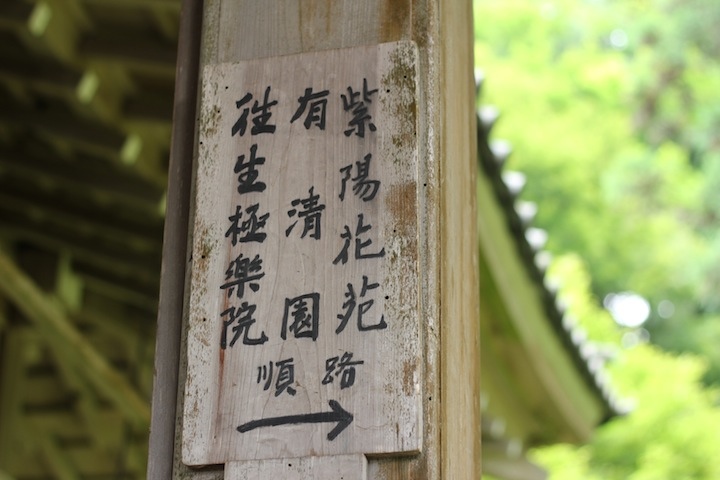 紫陽花苑
有清園
往生極樂院
順路